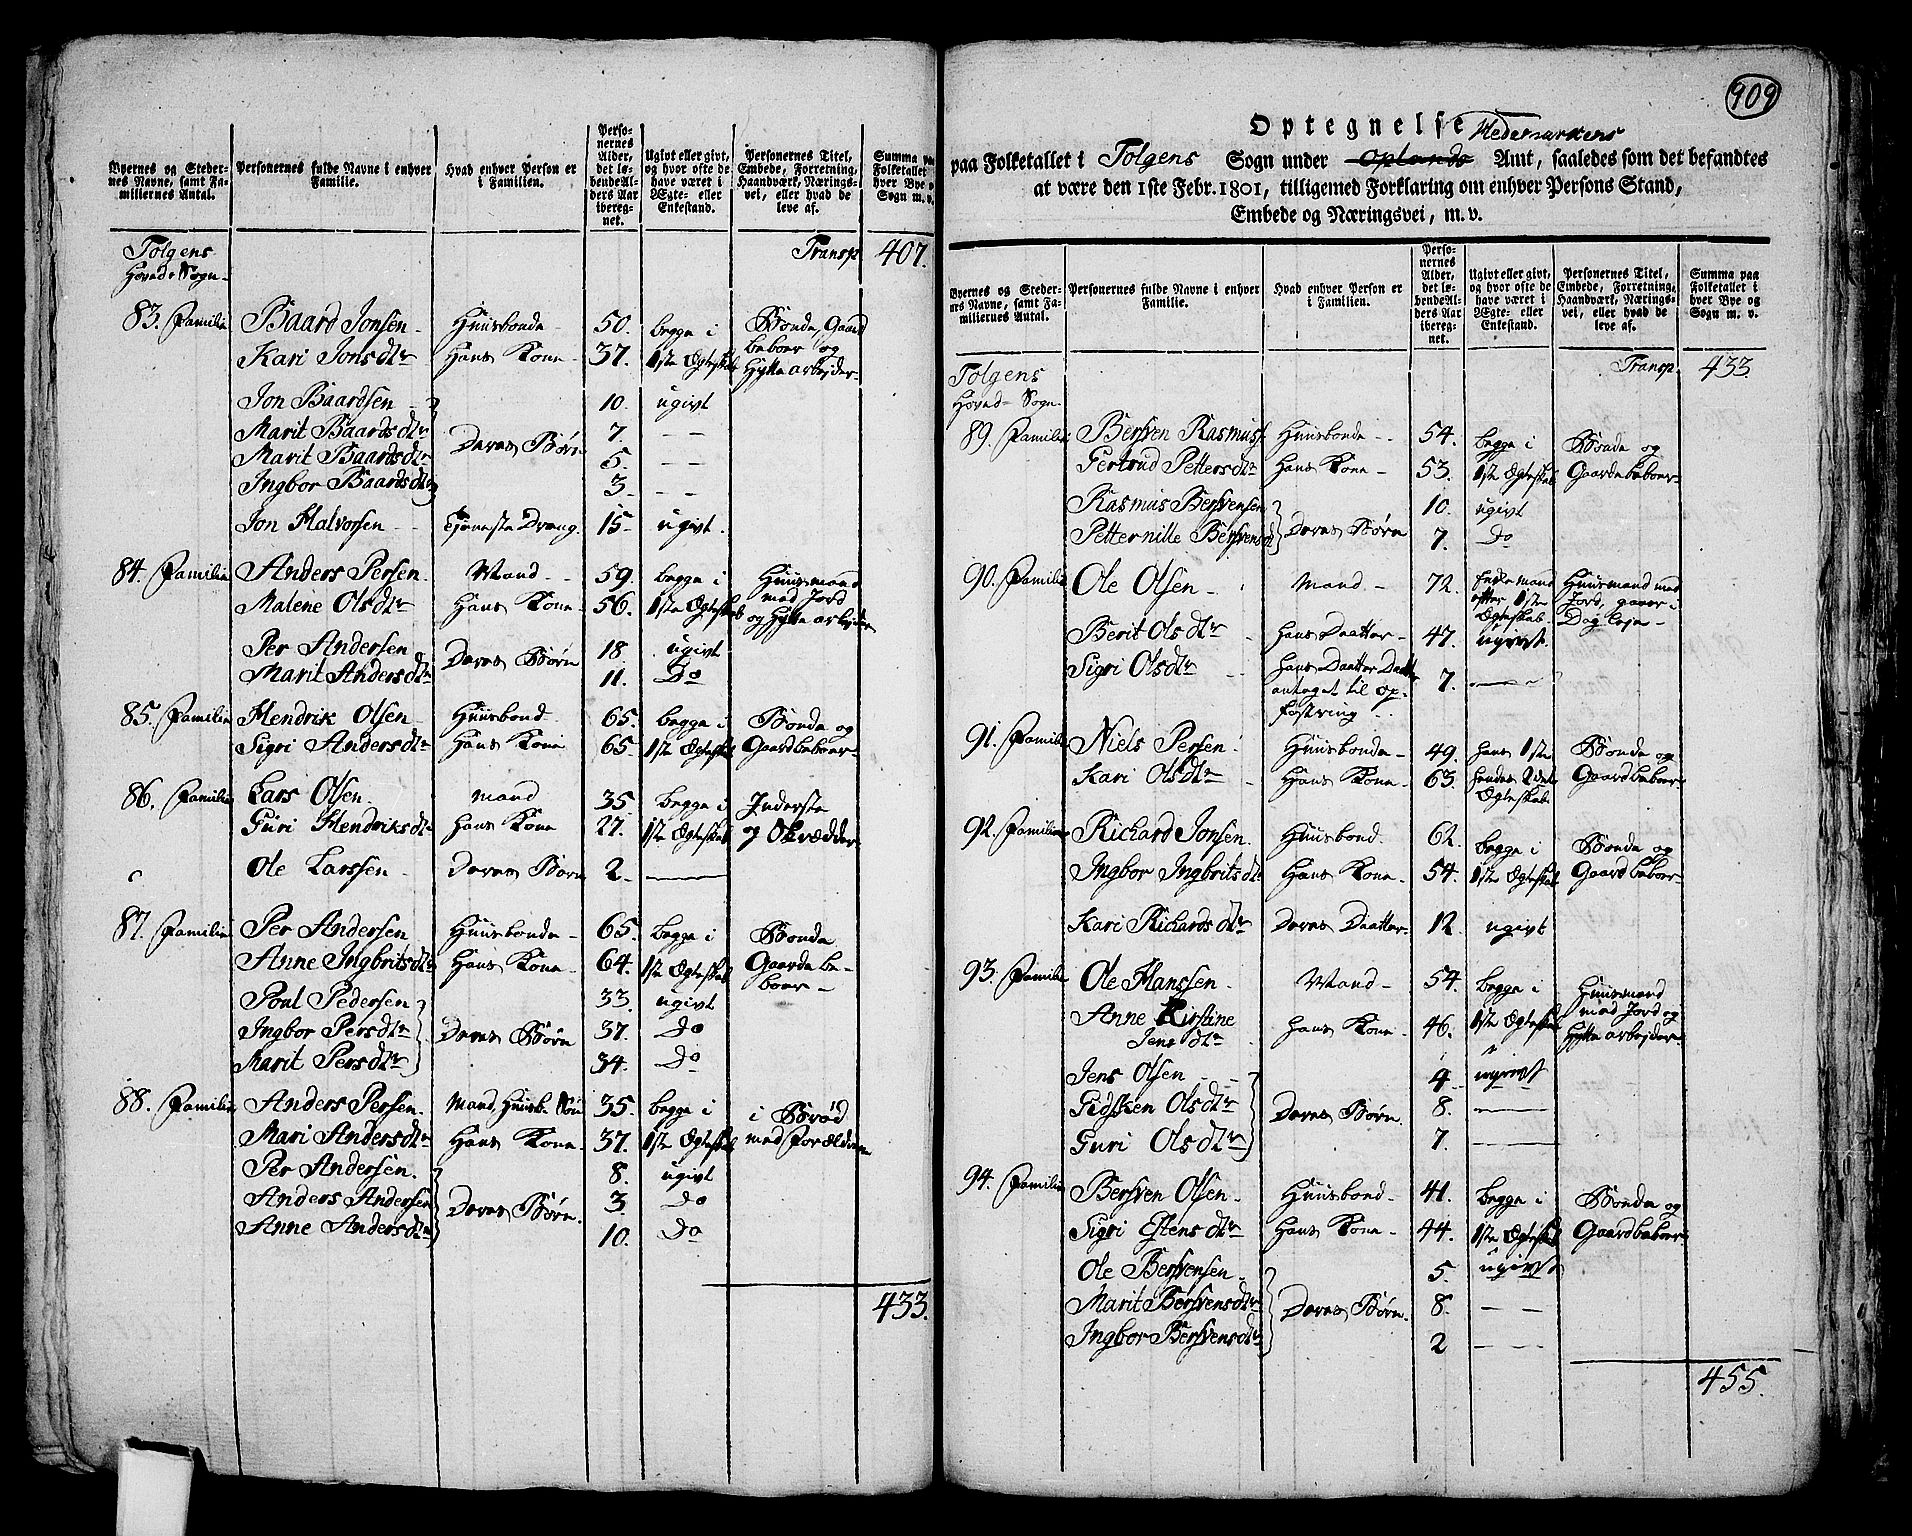 Byernes og Steder-
nes Navne, samt Fa-
milliernes Antal.
Personernes fulde Navne i enhver
Familie.
Hvad enhver Person er
i Familien.
Perso-
nernes
Alder,
det lø-
bende Al-
ders Aar
ibereg-
net.
Ugivt eller givt,
og hvor ofte de
have været i
Ægte- eller
Enkestand.
Personernes Titel,
Embede, Forretning,
Haandværk, Nærings-
vei, eller hvad de
leve af.
Summa paa
Folketallet i
hver Bye og
Sogn m. v.
Tolgens Transp 407.
Hoved-Sogn-
83. Familie Baard Jonsen Huusbonde 50. begge i Bonde, Gaard
Kari Jonsdtr Hans Kone 37. 1ste Ægteskab beboer og
Hytte arbejder
Jon Baardsen 10. ugivt
Marit Baardsdtr Deres Børn 7. — —
Marit Baardsdtr 5. — —
Ingbor Baardsdtr 3. — —
Jon Halvorsen Tjeneste Dreng. 15. ugivt.
84. Familie Anders Persen Mand 59. begge i Huusmand
Malene Olsdtr Hans Kone 56. 1ste Ægteskab med Jord
og Hytte arbejder
Per Andersen Deres Børn 18. ugivt
Marit Andersdtr 11. Do
85. Familie Hendrik Olsen Huusbond 65. begge i Bonde og
Sigri Andersdtr Hans Kone 65. 1ste Ægteskab Gaardbeboer
86. Familie Lars Olsen mand 35 begge i Inderste
Guri Hendriksdtr hans Kone 27. 1ste Ægteskab
Ole Larssen Deres Børn 2. —
87. Familie Per Andersen Huusbonde 65. begge i Bonde
Anne Ingbritsdtr Hans Kone 64. 1ste Ægteskab Gaardebe-
boer
Poul Pedersen 33. ugivt
Ingbor Persdtr Deres Børn 37. Do
Marit Persdtr 34. Do
88. Familie Anders Persen Mand, Huusb. Søn 35. begge i i Brød
Mari Andersdtr Hans Kone 37. 1ste Ægteskab med Forældrene
Per Andersen 8. ugivt
Anders Andersen Deres Børn 3. Do
Anne Andersdtr 10. Do
433.
909
Optegnelse Hedemarkens
paa Folketallet i Tolgens Sogn under Oplands Amt, saaledes som det befandtes
at være den 1ste Febr. 1801, tilligemed Forklaring om enhver Persons Stand,
Embede og Næringsvei, m. v.
Byernes og Steder-
nes Navne, samt Fa-
milliernes Antal.
Personernes fulde Navne i enhver
Familie.
Hvad enhver Person er
i Familien.
Perso-
nernes
Alder,
det lø-
bende Al-
ders Aar
ibereg-
net.
Ugivt eller givt,
og hvor ofte de
have været i
Ægte- eller
Enkestand.
Personernes Titel,
Embede, Forretning,
Haandværk, Nærings-
vei, eller hvad de
leve af.
Summa paa
Folketallet i
hver Bye og
Sogn m. v.
Tolgens Transp. 433.
Hoved-Sogn.
89. Familie Bersven Rasmuss. Huusbonde 54. begge i Bonde og
Gertrud Pettersdtr Hans Kone 53. 1ste Ægteskab Gaardebeboer
Rasmus Bersvensen Deres Børn 10. ugivt
Petternille Bersvensd 7. Do
90. Familie Ole Olsen mand 72. Enkemand Huusmand med
efter 1ste Jord, gaaer i
Ægteskab Dag leje
Berit Olsdtr hans Daatter 47. ugivt.
Sigri Olsdtr hans Daatter Daatter 7. —
antaget til op-
fostring
91. Familie Niels Persen Huusbonde 49. hans 1ste Bonde og
Kari Olsdtr Hans Kone 63. hendes 2det Gaardbeboer
Ægteskab
92. Familie Richard Jonsen Huusbond 62. begge i Bonde og
Ingbor Ingbritsdtr Hans Kone 54. 1ste Ægteskab Gaardbeboer
Kari Richardsdtr Deres Daatter 12. ugivt
93. Familie Ole Hanssen Mand 54. begge i Huusmand
Anne Kirstine hans Kone 46. 1ste Ægteskab med Jord og
Jensdtr Hytte arbejder
Jens Olsen 4. ugivt
Gidsken Olsdtr Deres Børn 8. —
Guri Olsdtr 7. —
94. Familie Bersven Olsen Huusbond 41. begge i Bonde og
Sigri Estensdtr Hans Kone 44. 1ste Ægteskab Gaardbeboer
Ole Bersvensen 5. ugivt
Marit Bersvensdtr Deres Børn 8. — —
Ingbor Bersvensdtr 2 — —
455.